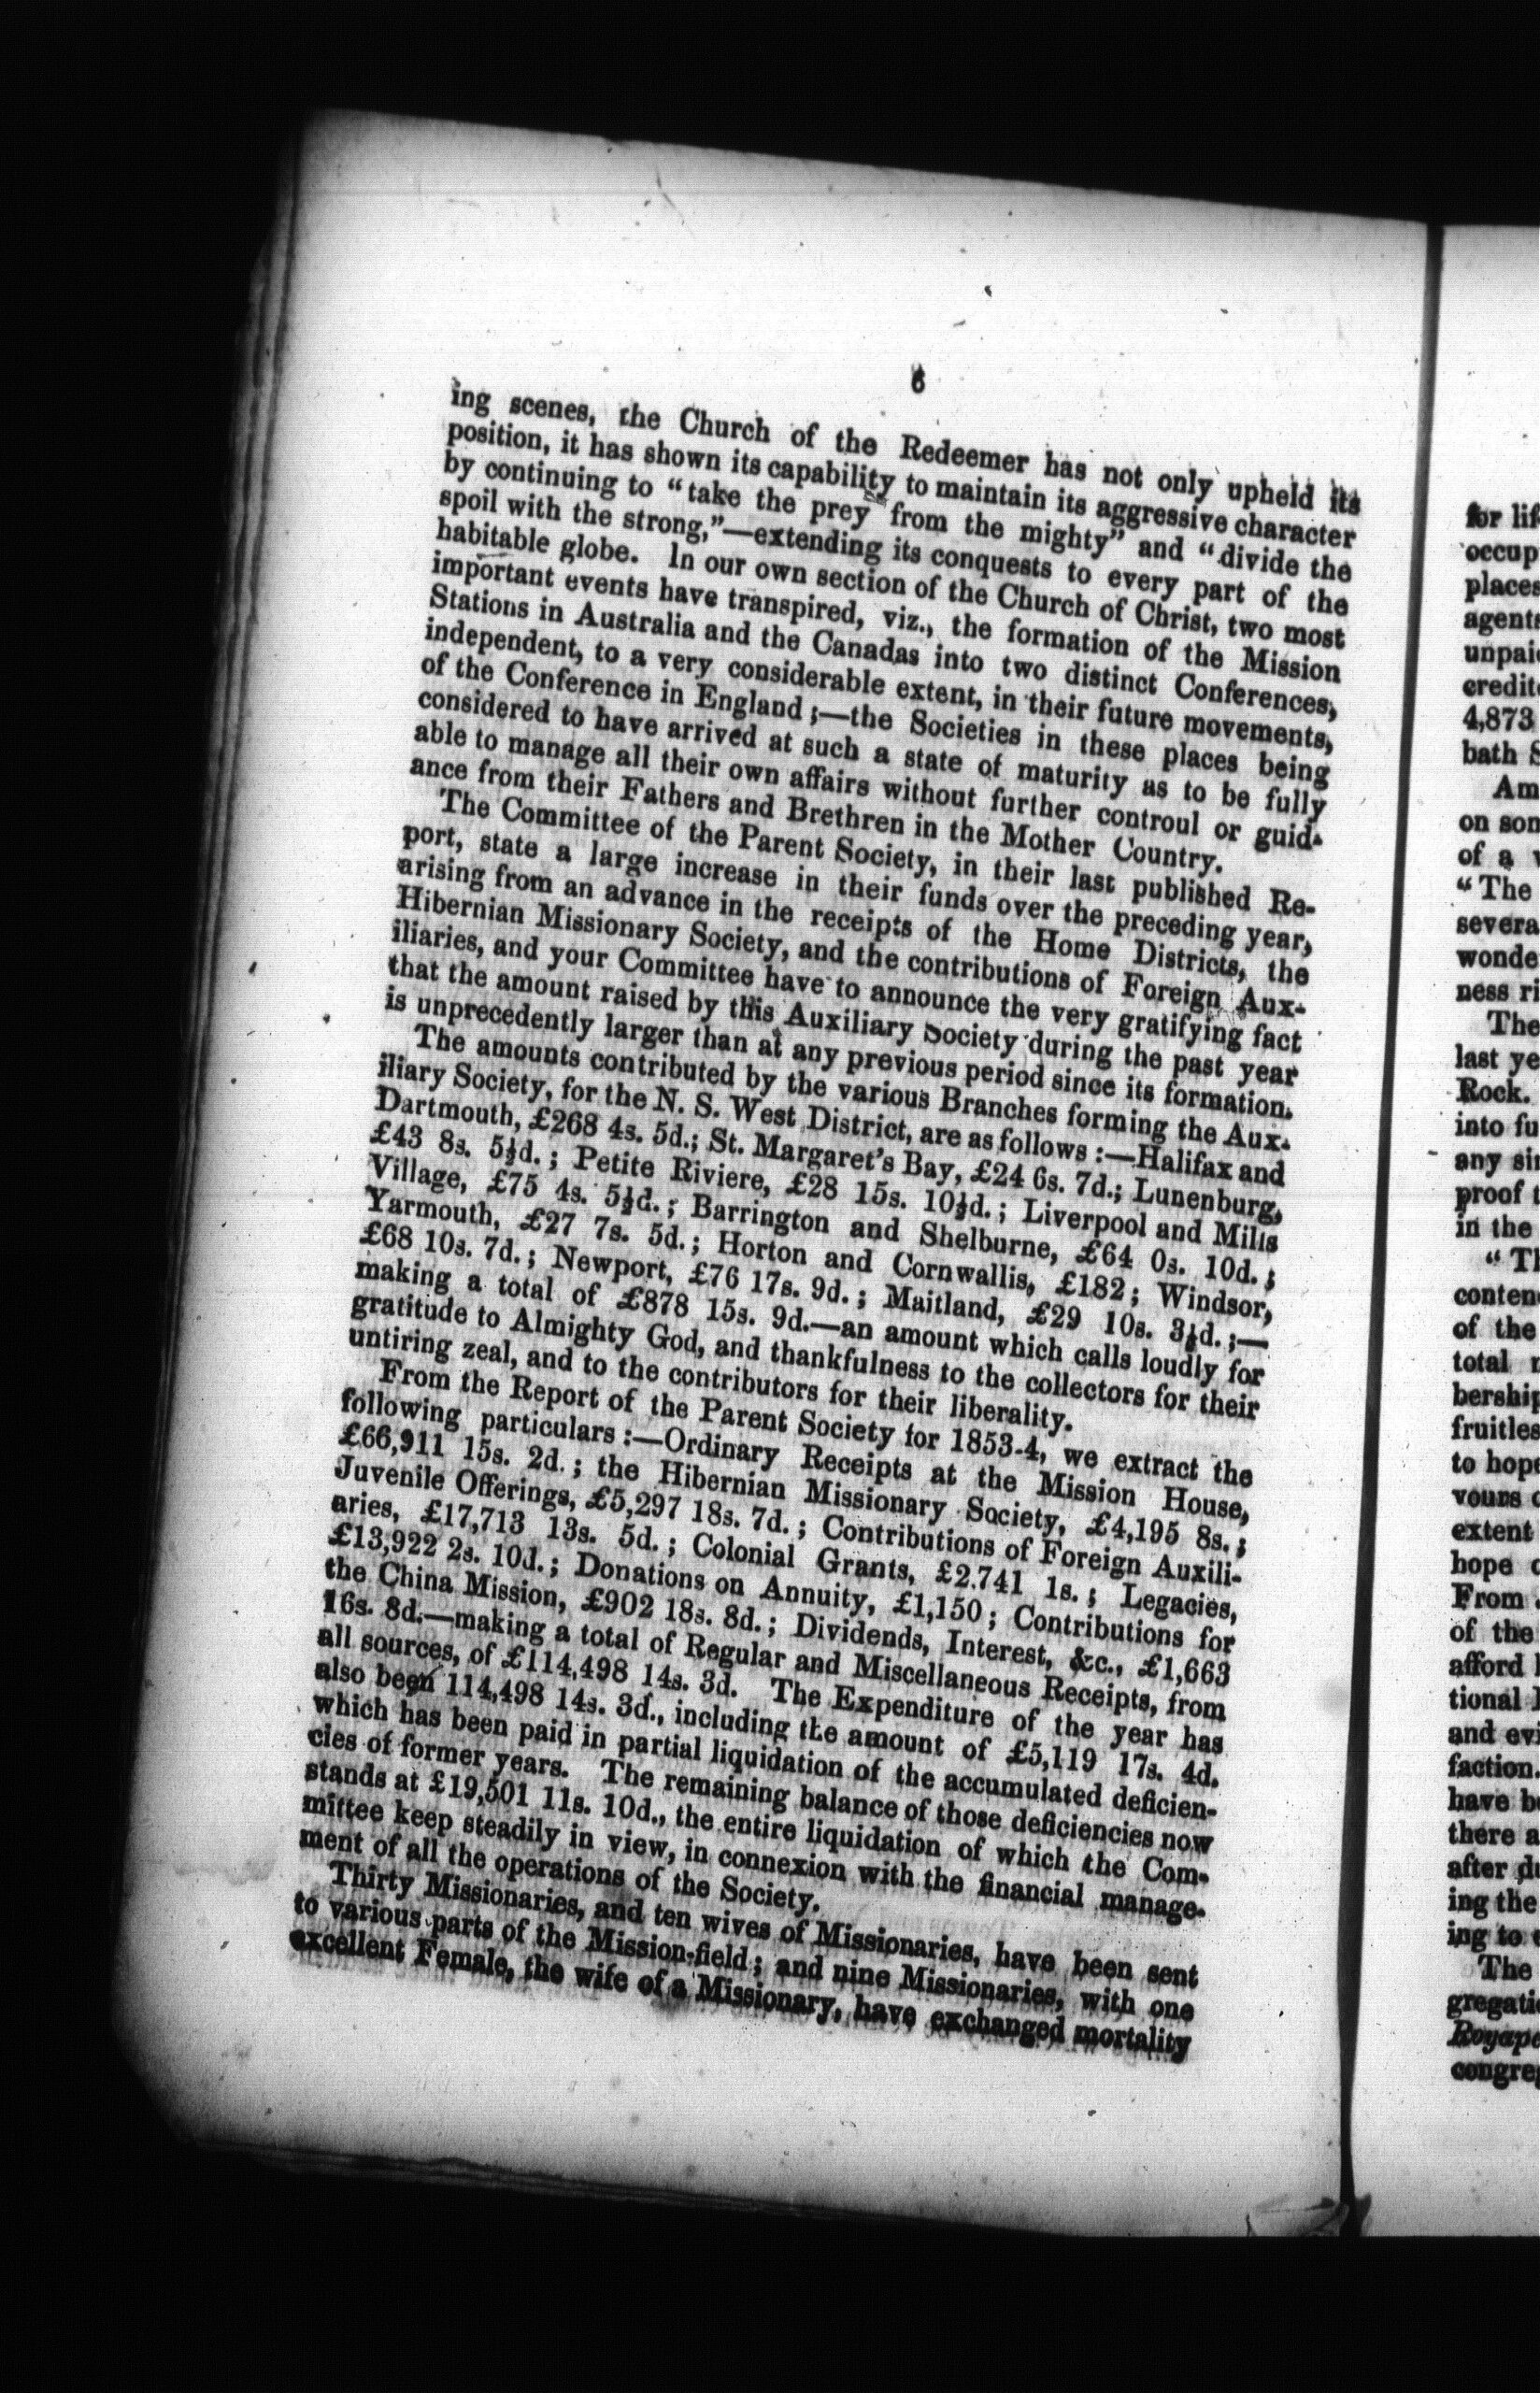 6
ing scenes, the Church of the Redeemer has not only upheld its
position, it has shown its capability to maintain its aggressive character
by continuing to "take the prey from the mighty" and "divide the
spoil with the strong,"—extending its conquests to every part of the
habitable globe. In our own section of the Church of Christ, two most
important events have transpired, viz., the formation of the Mission
Stations in Australia and the Canadas into two distinct Conferences,
independent, to a very considerable extent, in their future movements,
of the Conference in England;—the Societies in these places being
considered to have arrived at such a state of maturity as to be fully
able to manage all their own affairs without further controul or guid-
ance from their Fathers and Brethren in the Mother Country.
The Committee of the Parent Society, in their last published Re-
port, state a large increase in their funds over the preceding year,
arising from an advance in the receipts of the Home Districts, the
Hibernian Missionary Society, and the contributions of Foreign Aux-
iliaries, and your Committee have to announce the very gratifying fact
that the amount raised by this Auxiliary Society during the past year
is unprecedently larger than at any previous period since its formation.
The amounts contributed by the various Branches forming the Aux-
iliary Society, for the N. S. West District, are as follows:—Halifax and
Dartmouth, £268 4s. 5d.; St. Margaret's Bay, £24 6s. 7d.; Lunenburg,
£43 8s. 5½d.; Petite Riviere, £28 15s. 10½d.; Liverpool and Mills
Village, £75 4s. 5½d.; Barrington and Shelburne, £64 0s. 10d.;
Yarmouth, £27 7s. 5d.; Horton and Cornwallis, £182; Windsor,
£68 10s. 7d.; Newport, £76 17s. 9d.; Maitland, £29 10s. 3½d.;—
making a total of £878 15s. 9d.—an amount which calls loudly for
gratitude to Almighty God, and thankfulness to the collectors for their
untiring zeal, and to the contributors for their liberality.
From the Report of the Parent Society for 1853-4, we extract the
following particulars:—Ordinary Receipts at the Mission House,
£66,911 15s. 2d.; the Hibernian Missionary Society, £4,195 8s.;
Juvenile Offerings, £5,297 18s. 7d.; Contributions of Foreign Auxili-
aries, £17,713 13s. 5d.; Colonial Grants, £2,741 1s.; Legacies,
£13,922 2s. 10d.; Donations on Annuity, £1,150; Contributions for
the China Mission, £902 18s. 8d.; Dividends, Interest, &c., £1,663
16s. 8d.—making a total of Regular and Miscellaneous Receipts, from
all sources, of £114,498 14s. 3d. The Expenditure of the year has
also been 114,498 14s. 3d., including the amount of £5,119 17s. 4d.
which has been paid in partial liquidation of the accumulated deficien-
cies of former years. The remaining balance of those deficiencies now
stands at £19,501 11s. 10d., the entire liquidation of which the Com-
mittee keep steadily in view, in connexion with the financial manage-
ment of all the operations of the Society.
Thirty Missionaries, and ten wives of Missionaries, have been sent
to various parts of the Mission-field; and nine Missionaries, with one
excellent Female, the wife of a Missionary, have exchanged mortality
for lif
occup
places
agents
unpaid
credite
4,873
bath S
Am
on som
of a
"The
severa
wonde
ness ri
The
last ye
Rock.
into fu
any sin
proof t
in the
"Th
conten
of the
total
bership
fruitles
to hope
vours
extent
hope
From
of the
afford
tional
and evi
faction.
have be
there a
after du
ing the
ing to
The
gregatio
Royape
congreg